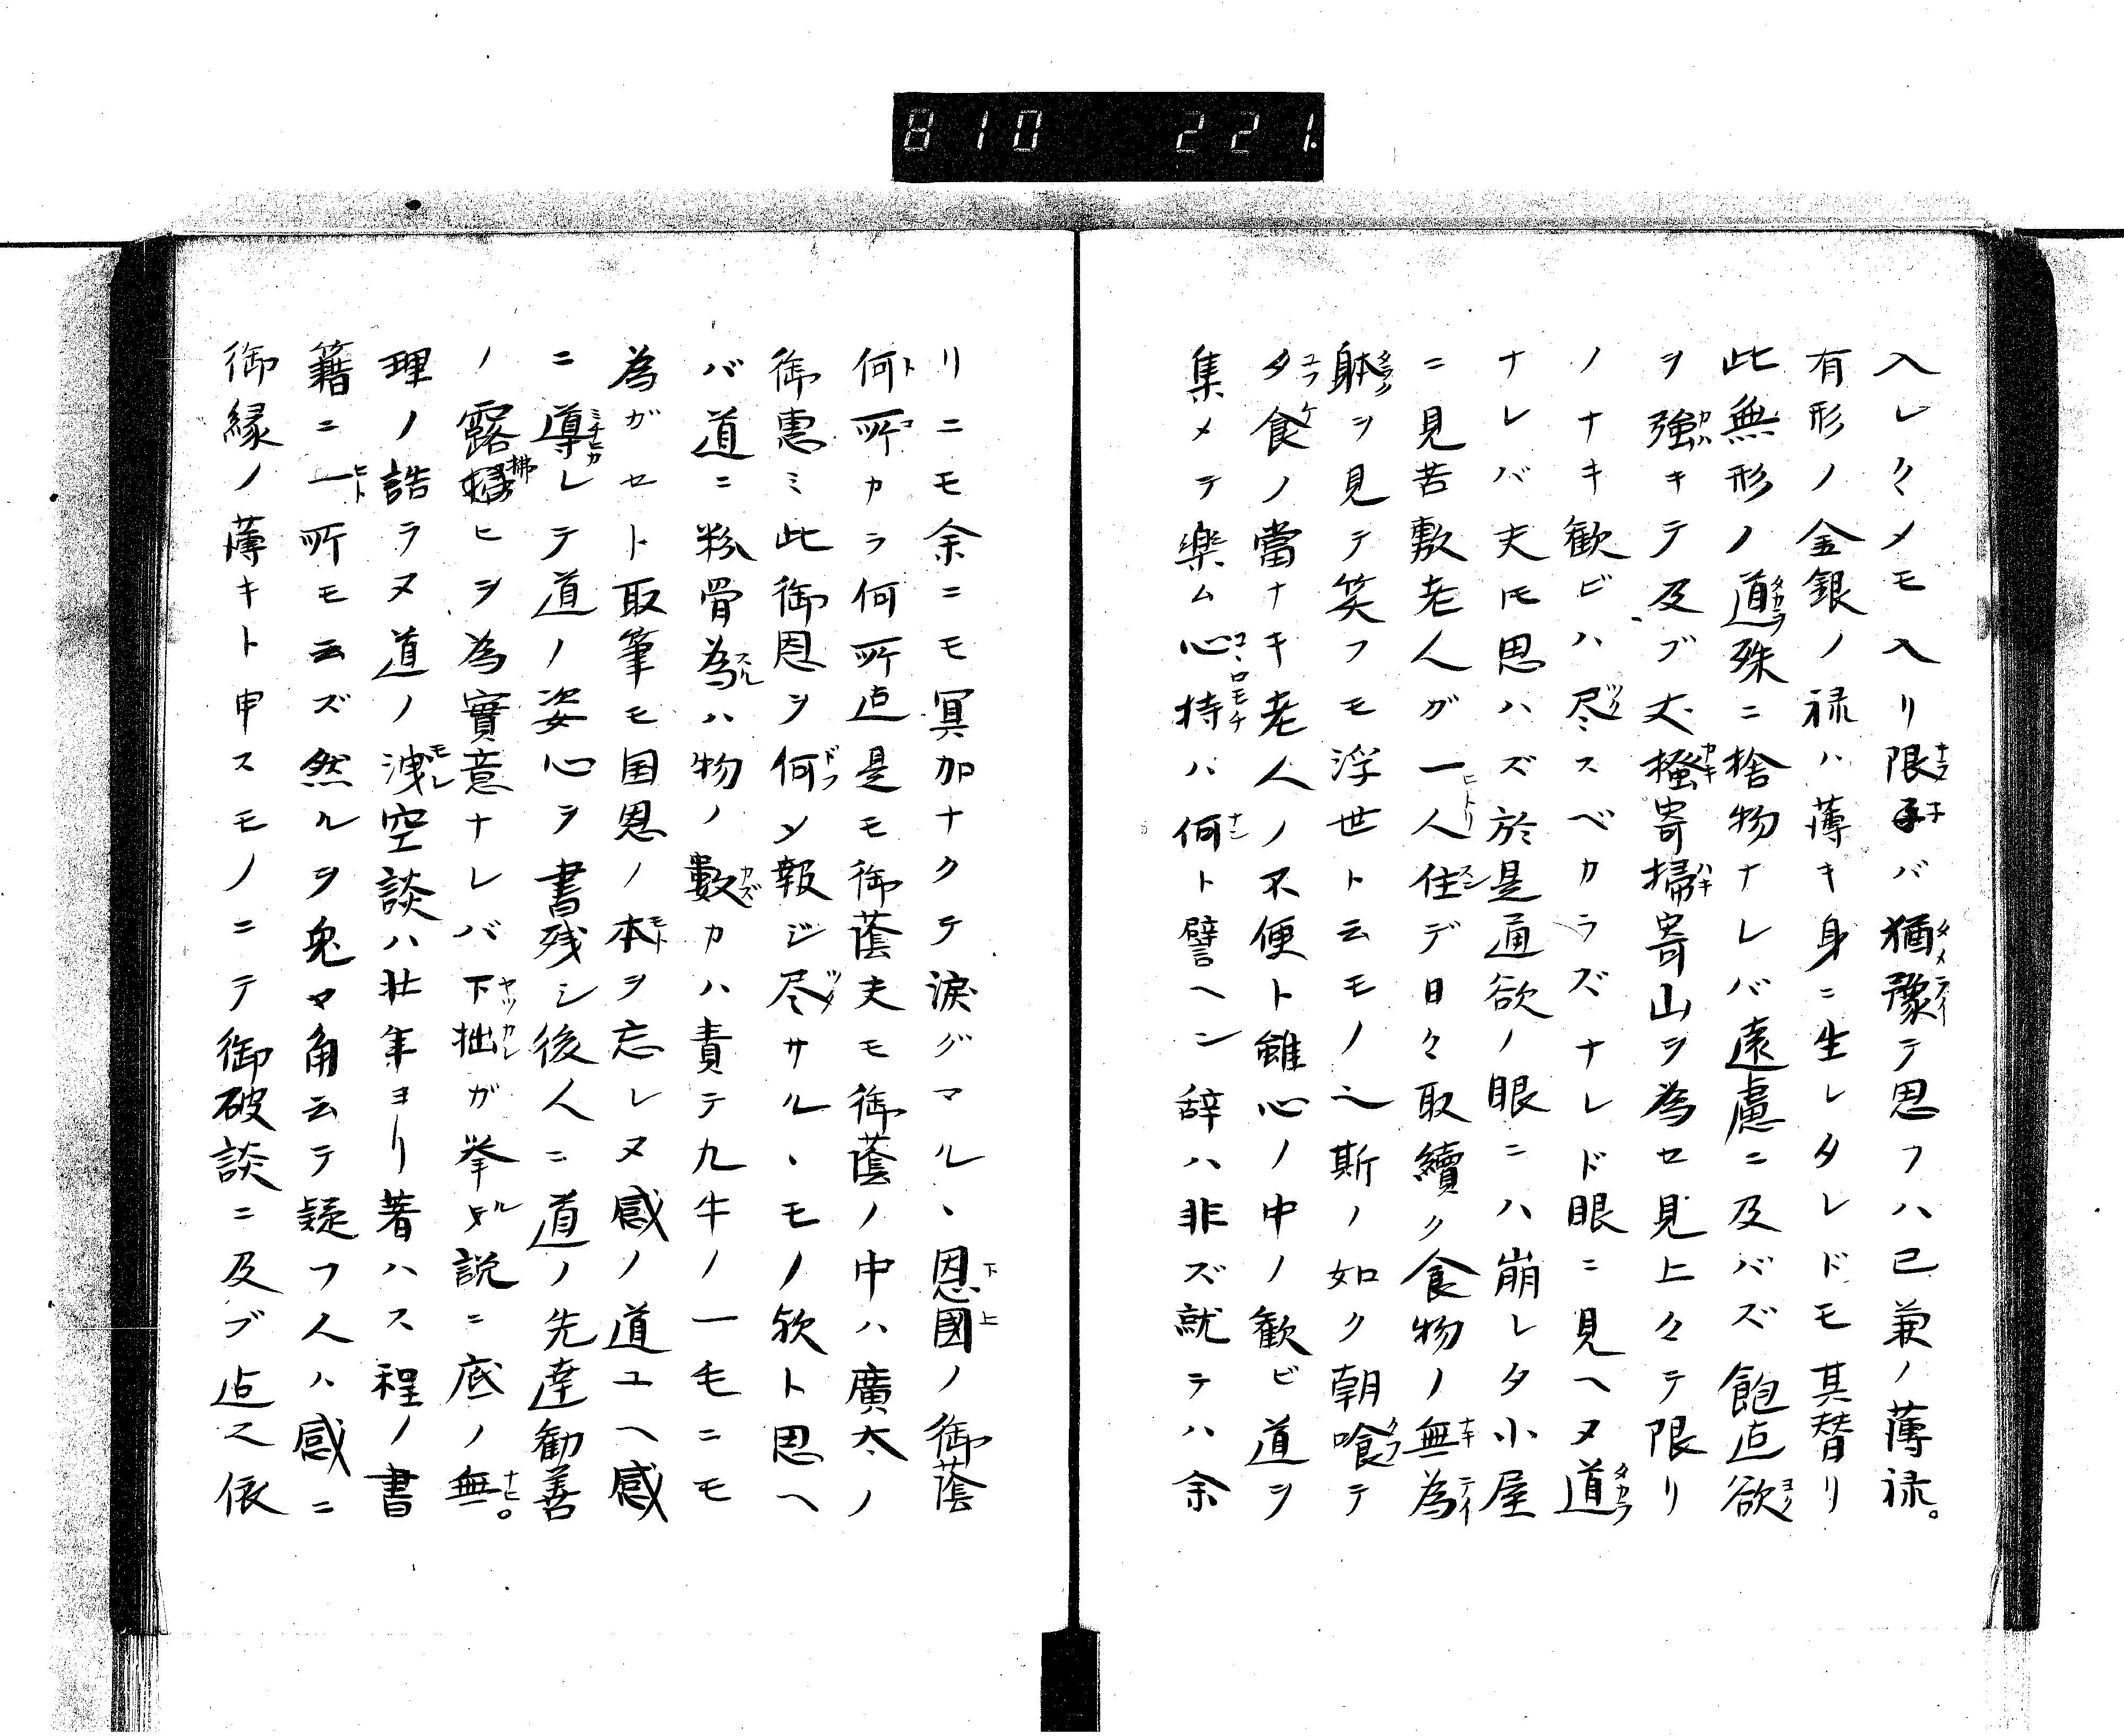 810 221.
入レクメモ入リ限承バ猶豫テ思フハ已兼ノ薄禄。
有形ノ金銀ノ禄ハ薄キ身ニ生レタレドモ其替リ
此無形ノ道殊ニ捨物ナレバ遠慮ニ及バズ飽迠欲
ヲ強キテ及ブ丈掻寄掃寄山ヲ為セ見上々テ限リ
ノナキ歓ビハ尽スベカラズナレド眼ニ見ヘヌ道
ナレバ夫トモ思ハズ於是通欲ノ眼ニハ崩レタ小屋
ニ見苦敷老人ガ一人住デ日々取續ク食物ノ無為
躰ヲ見テ笑フモ浮世ト云モノ之斯ノ如ク朝喰テ
夕食ノ當ナキ老人ノ不便ト雖心ノ中ノ歓ビ道ヲ
集メテ樂ム心持ハ何ト譬ヘン辞ハ非ズ就テハ余
リニモ余ニモ冥加ナクテ涙グマル、恩國ノ御蔭
何所カラ何所迠是モ御蔭夫モ御蔭ノ中ハ廣太ノ
御惠ミ此御恩ヲ何タ報ジ尽サル、モノ欤ト思ヘ
バ道ニ粉骨為ハ物ノ數カハ責テ九牛ノ一毛ニモ
為ガセト取筆モ国恩ノ本ヲ忘レヌ感ノ道ユヘ感
ニ導レテ道ノ姿心ヲ書残シ後人ニ道ノ先達勧善
ノ露拂ヒヲ為實意ナレバ下拙ガ挙ル説ニ底ノ無。
理ノ誥ラヌ道ノ洩空談ハ壮年ヨリ著ハス程ノ書
籍ニ一所モ云ズ然ルヲ兔ヤ角云テ疑フ人ハ感ニ
御縁ノ薄キト申スモノニテ御破談ニ及ブ迠ス依